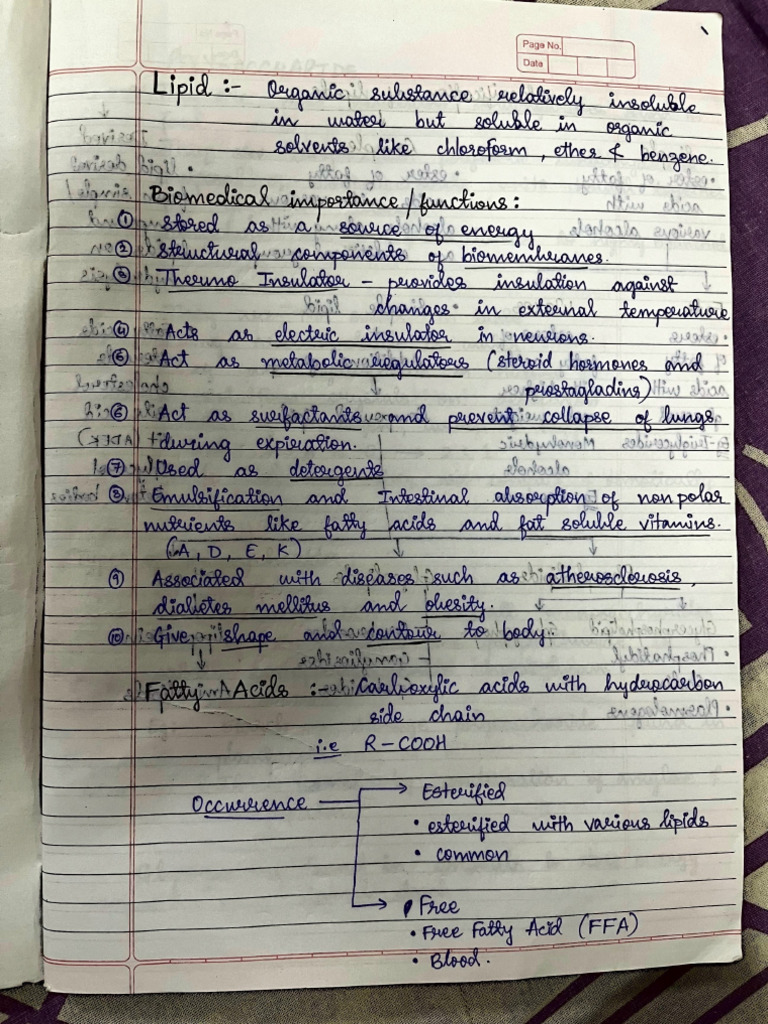 Page No.
Date
Lipid :- Organic substance relatively insoluble
in water but soluble in organic
solvents like chloroform, ether & benzene.
Biomedical importance/functions:
① stored as a source of energy
② structural components of biomembranes.
③ Thermo Insulator – provides insulation against
changes in external temperature
④ Acts as electric insulator in neurons.
⑤ Act as metabolic regulators (steroid hormones and
prostagladins)
⑥ Act as surfactants and prevent collapse of lungs
during expiration.
⑦ Used as detergents
⑧ Emulsification and Intestinal absorption of non polar
nutrients like fatty acids and fat soluble vitamins.
(A, D, E, K)
⑨ Associated with diseases such as atherosclerosis,
diabetes mellitus and obesity.
⑩ Give shape and contour to body
Fatty Acids :- Carboxylic acids with hydrocarbon
side chain
i.e R-COOH
Occurrence → Esterified
• esterified with various lipids
• common
→ Free
• Free Fatty Acid (FFA)
• Blood.